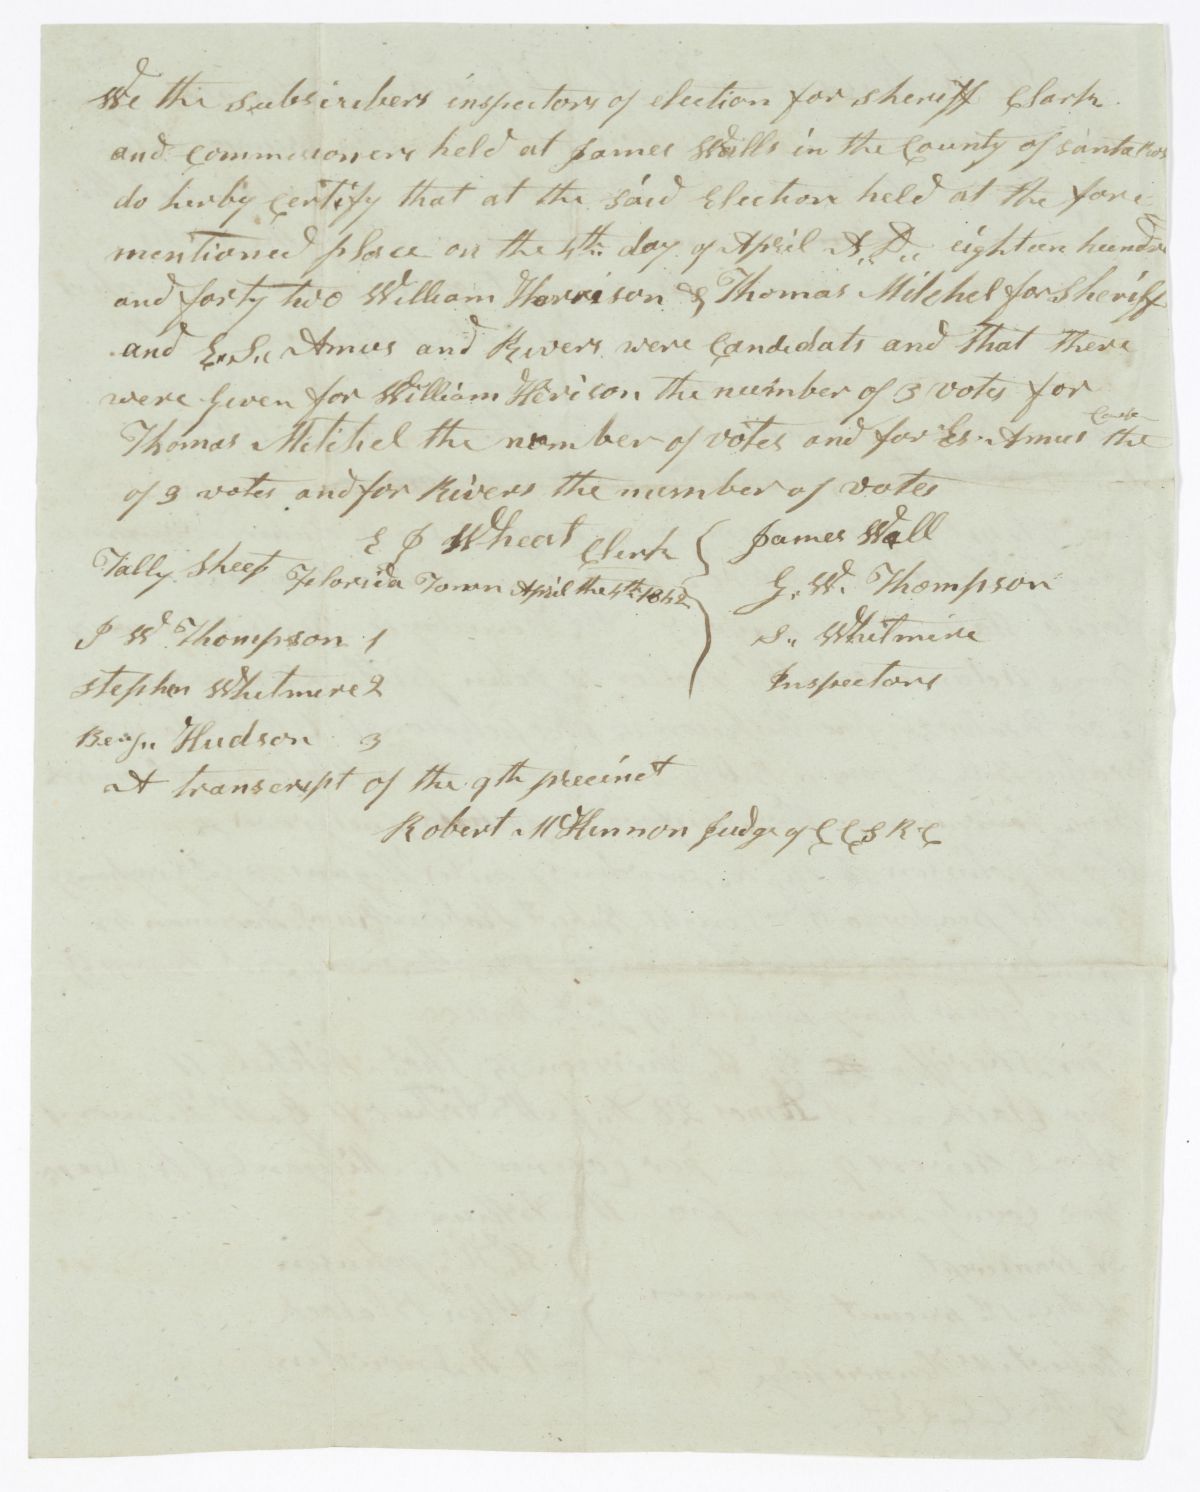 We the Subsirebers inspectors of election for sheriff Clark
and commisoners held at James Walls in the County of Santa Rosa
do herby certify that at the said Election held at the fore
mentioned place on the 4th day of April A,,D,, eighteen hundred
and forty two William Harrison & Thomas Mitchel for Sheriff
and E,,S,, Amos and Rivers were Candidats and that there
were Given for William Herison the number of 3 votes for
Thomas Mitchel the number of votes and for Es. Amos Clark the
of 3 votes and for Rivers the number of votes
E J Wheat Clerk
James Wall
Tally Sheet Florida Town April the 4th 1842
G. W. Thompson
J W Thompson 1
S,, Whitmire
Stephen Whitmire 2
Inspectors
Benj,, Hudson 3
A transcript of the 9th precinct
Robert McKinnon Judge of C C S R C